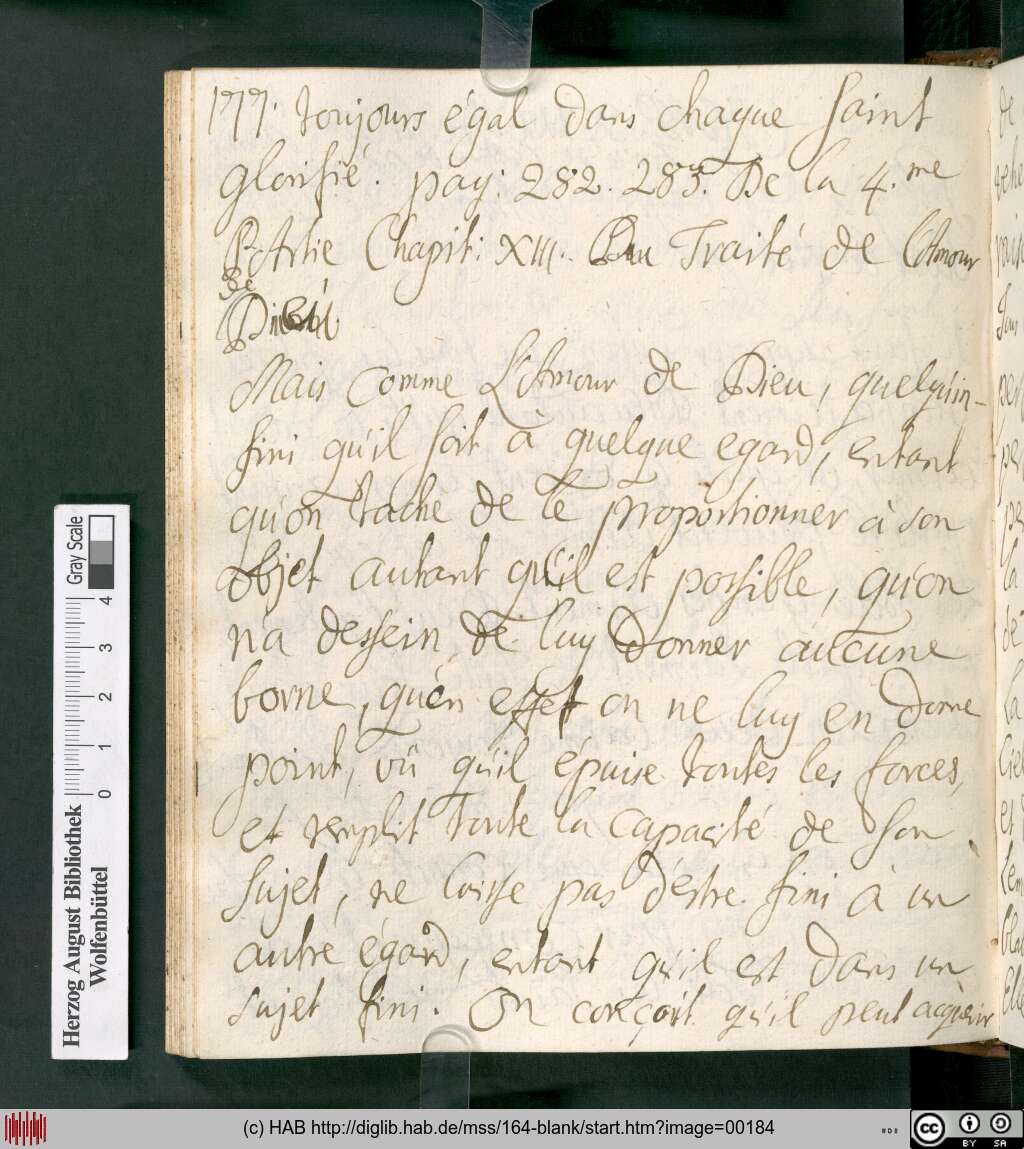 177. toujours égal dans chaque saint
glorifié. pag: 282. 283. De la 4.me
Partie Chapit: XIII. Du Traité de l'Amour
de
Dieu
Mais comme L'Amour de Dieu, quelqu'in-
fini qu'il soit à quelque egard, entant
qu'on tache de le proportionner à son
objet autant qu'il est possible, qu'on
n'a dessein de luy donner aucune
borne, qu'en effet on ne luy en donne
point, vû qu'il épuise toutes les forces,
et remplit toute la capacité de son
sujet, ne laisse pas d'estre fini à un
autre égard, entant qu'il est dans un
sujet fini. On conçoit qu'il peut acquerir
Gray Scale
0 1 2 3 4
Herzog August Bibliothek
Wolfenbüttel
(c) HAB http://diglib.hab.de/mss/164-blank/start.htm?image=00184
cc BY SA